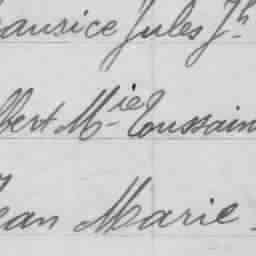 aurice Jules Jh
bert Mie Toussain
ean Marie